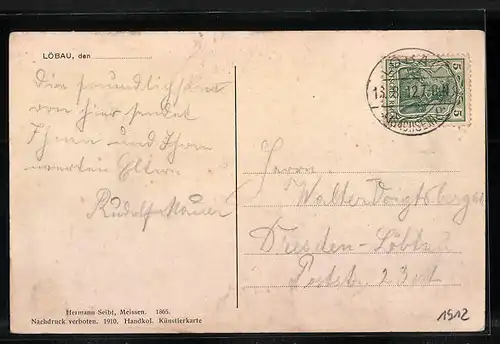 LÖBAU, den
Die freundlichsten
von hier sendet
Ihnen und Ihren
werten Eltern
Rudolf Mauer
Herrn
Walter Voigtsberger
Dresden-Löbtau
Poststr. 23
Hermann Seibt, Meissen. 1865.
Nachdruck verboten. 1910. Handkol. Künstlerkarte
5 5
(SACHSEN)
1912